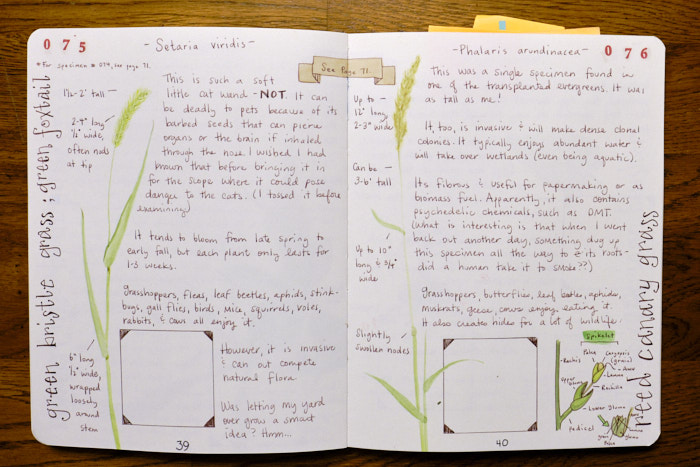 075
- Setaria viridis -
*For specimen # 074, see page 71.
green bristle grass; green foxtail
1½-2' tall
2-4" long
½" wide,
often nods
at tip
6" long
½" wide,
wrapped
loosely
around
stem
This is such a soft
little cat wand - NOT. It can
be deadly to pets because of its
barbed seeds that can pierce
organs or the brain if inhaled
through the nose. I wished I had
known that before bringing it in
for the scope where it could pose
danger to the cats. (I tossed it before
examining)
It tends to bloom from late spring to
early fall, but each plant only lasts for
1-3 weeks.
grasshoppers, fleas, leaf beetles, aphids, stink-
bugs, gall flies, birds, mice, squirrels, voles,
rabbits, & cows all enjoy it.
However, it is invasive
& can out compete
natural flora.
Was letting my yard
over grow a smart
idea? Hmm...
39
See Page 71.
- Phalaris arundinacea -
076
reed canary grass
Up to
12" long
2-3" wide
Can be
3-6' tall
Up to 10"
long & ¾"
wide
Slightly
swollen nodes
This was a single specimen found in
one of the transplanted evergreens. It was
as tall as me!
It, too, is invasive & will make dense clonal
colonies. It typically enjoys abundant water &
will take over wetlands (even being aquatic).
Its fibrous & useful for papermaking or as
biomass fuel. Apparently, it also contains
psychedelic chemicals, such as DMT.
(What is interesting is that when I went
back out another day, something dug up
this specimen all the way to its roots-
did a human take it to smoke??)
Grasshoppers, butterflies, leaf beetles, aphids,
muskrats, geese, cows enjoy eating it.
It also creates hides for a lot of wildlife.
Spikelet
Palea
Caryopsis
(grain)
Awn
Lemma
Rachis
Rachilla
Upper
Glume
Lower Glume
Pedicel
40